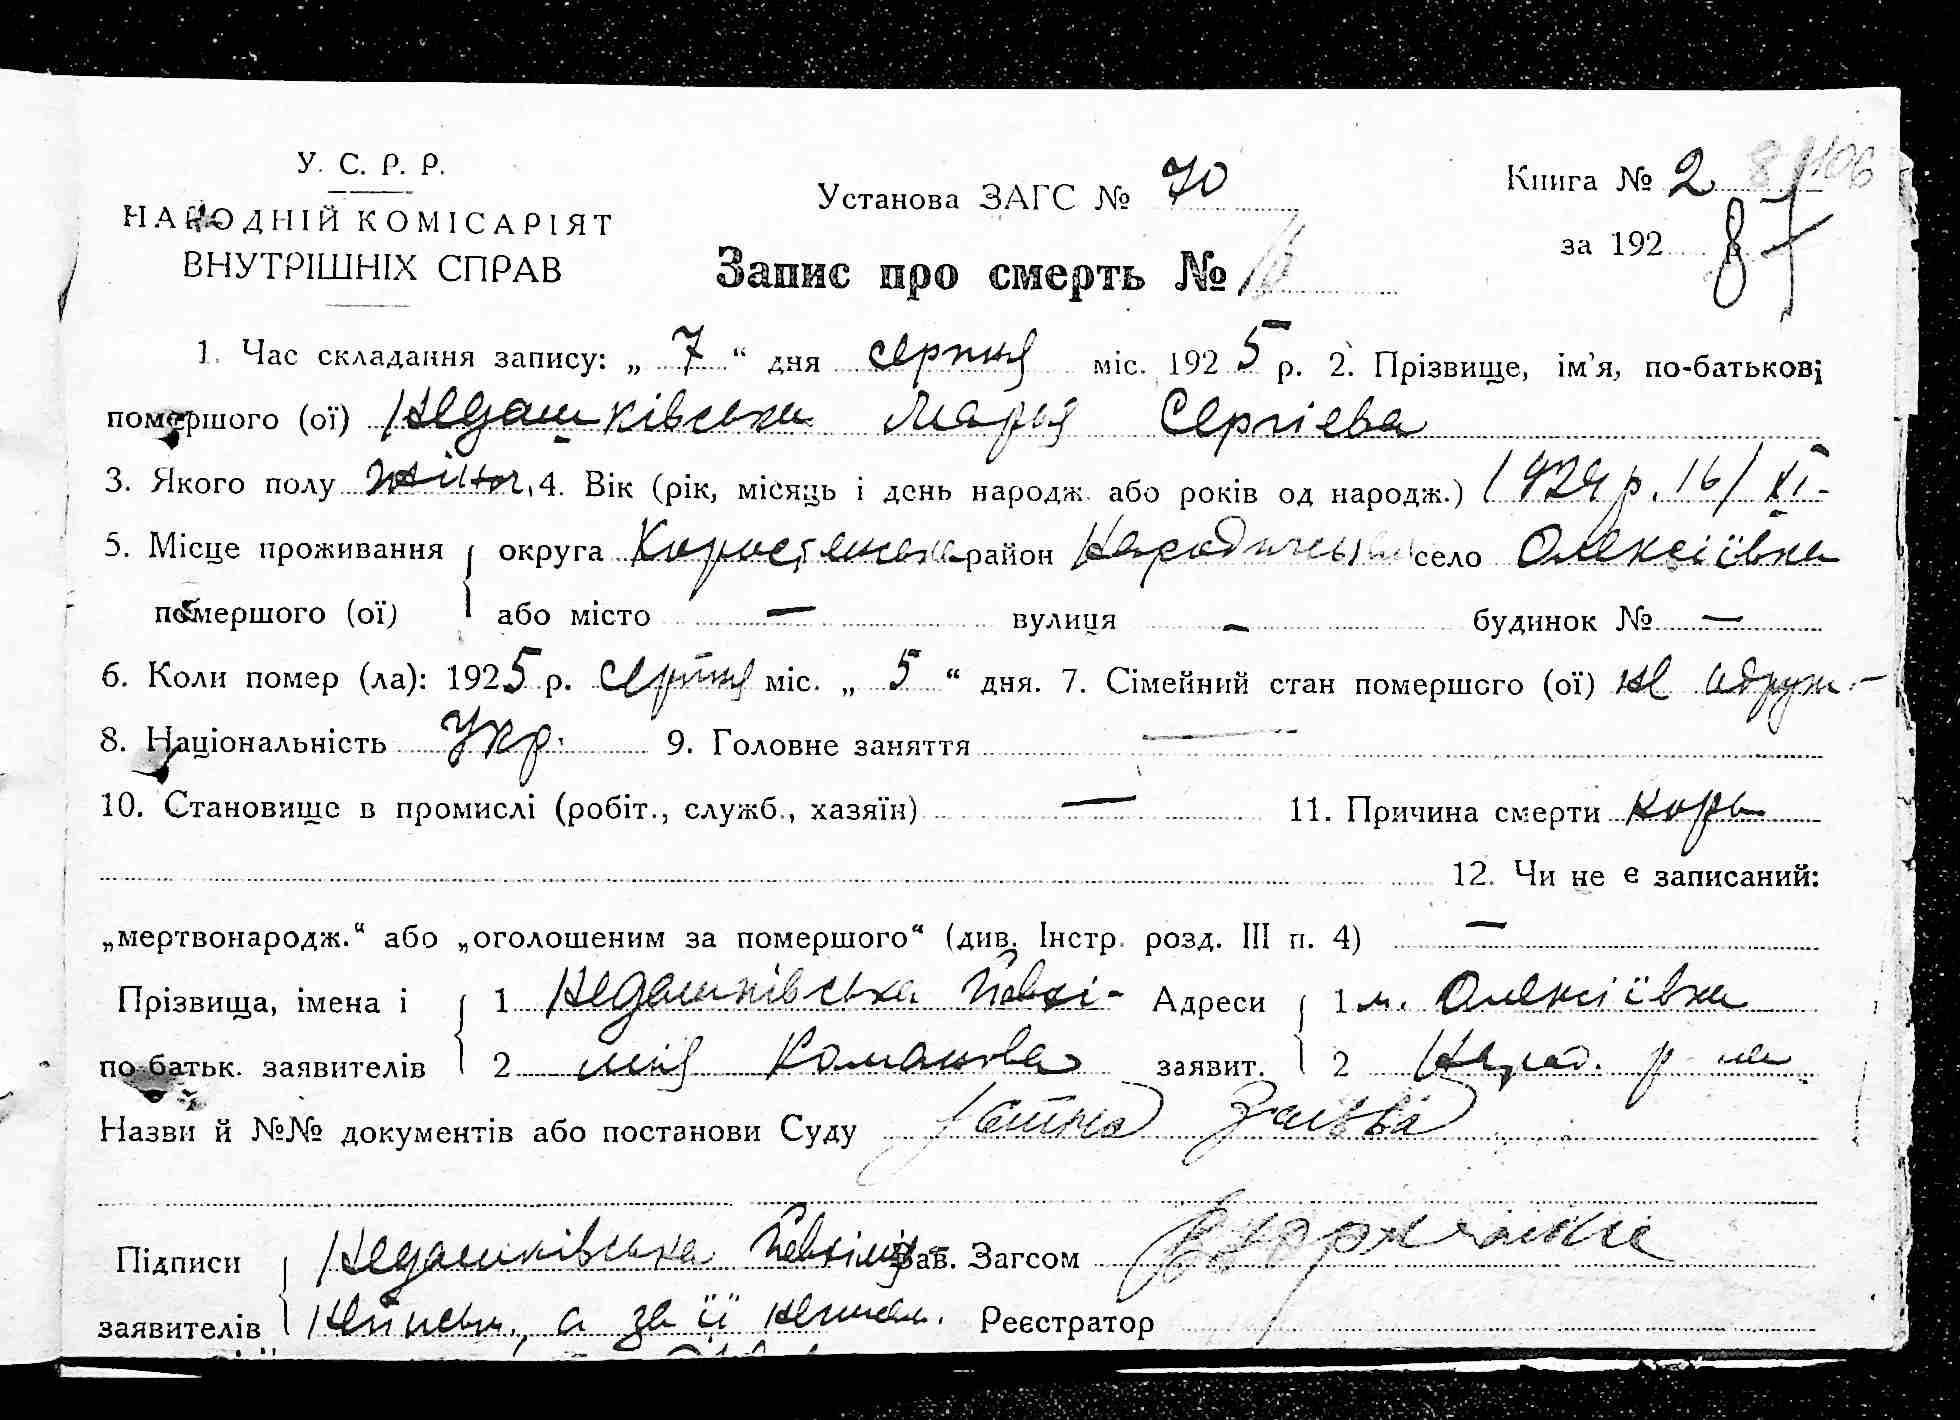 У. С. Р. Р.
НАРОДНІЙ КОМІСАРІЯТ
ВНУТРІШНІХ СПРАВ
Установа ЗАГС № 70
Книга № 2
за 192
Запис про смерть №
1. Час складання запису: „ 7 “ дня серпня міс. 1925 р. 2. Прізвище, ім'я, по-батькові
помершого (ої) Недашківська Марія Сергієва
3. Якого полу жіноч. 4. Вік (рік, місяць і день народж. або років од народж.) 1924 р. 16/XI-
5. Місце проживання округа Коростенська район Народичський село Олексіївка
помершого (ої) або місто — вулиця — будинок № —
6. Коли помер (ла): 1925 р. серпня міс. „ 5 “ дня. 7. Сімейний стан помершого (ої) не одруж-
8. Національність Укр. 9. Головне заняття —
10. Становище в промислі (робіт., служб., хазяїн) — 11. Причина смерти корь
12. Чи не є записаний:
„мертвонародж.“ або „оголошеним за помершого“ (див. Інстр. розд. III п. 4) —
Прізвища, імена і 1 Недашківська Адреси 1 Олексіївка
по-батьк. заявителів 2 заявит. 2 Нарад. р-на
Назви й №№ документів або постанови Суду
Підписи Недашківська Зав. Загсом
заявителів неписьм., а за її Реєстратор